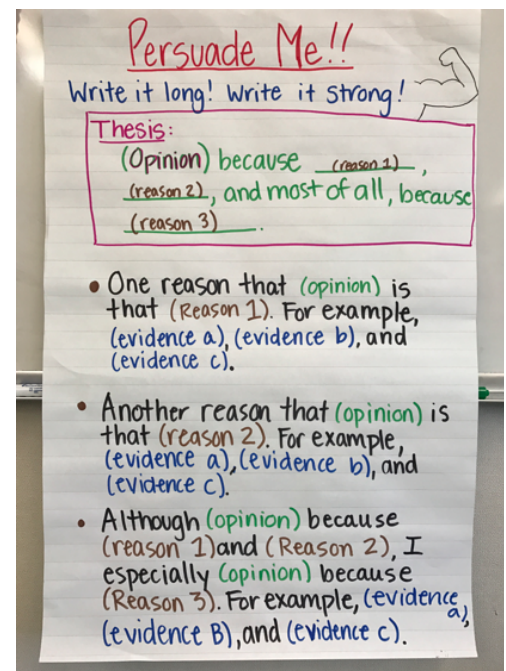 Persuade Me!!
Write it long! Write it strong!
Thesis:
(Opinion) because (reason 1),
(reason 2), and most of all, because
(reason 3).
• One reason that (opinion) is
that (Reason 1). For example,
(evidence a), (evidence b), and
(evidence c).
• Another reason that (opinion) is
that (reason 2). For example,
(evidence a), (evidence b), and
(evidence c).
• Although (opinion) because
(reason 1) and (Reason 2), I
especially (opinion) because
(Reason 3). For example, (evidence a),
(evidence B), and (evidence c).